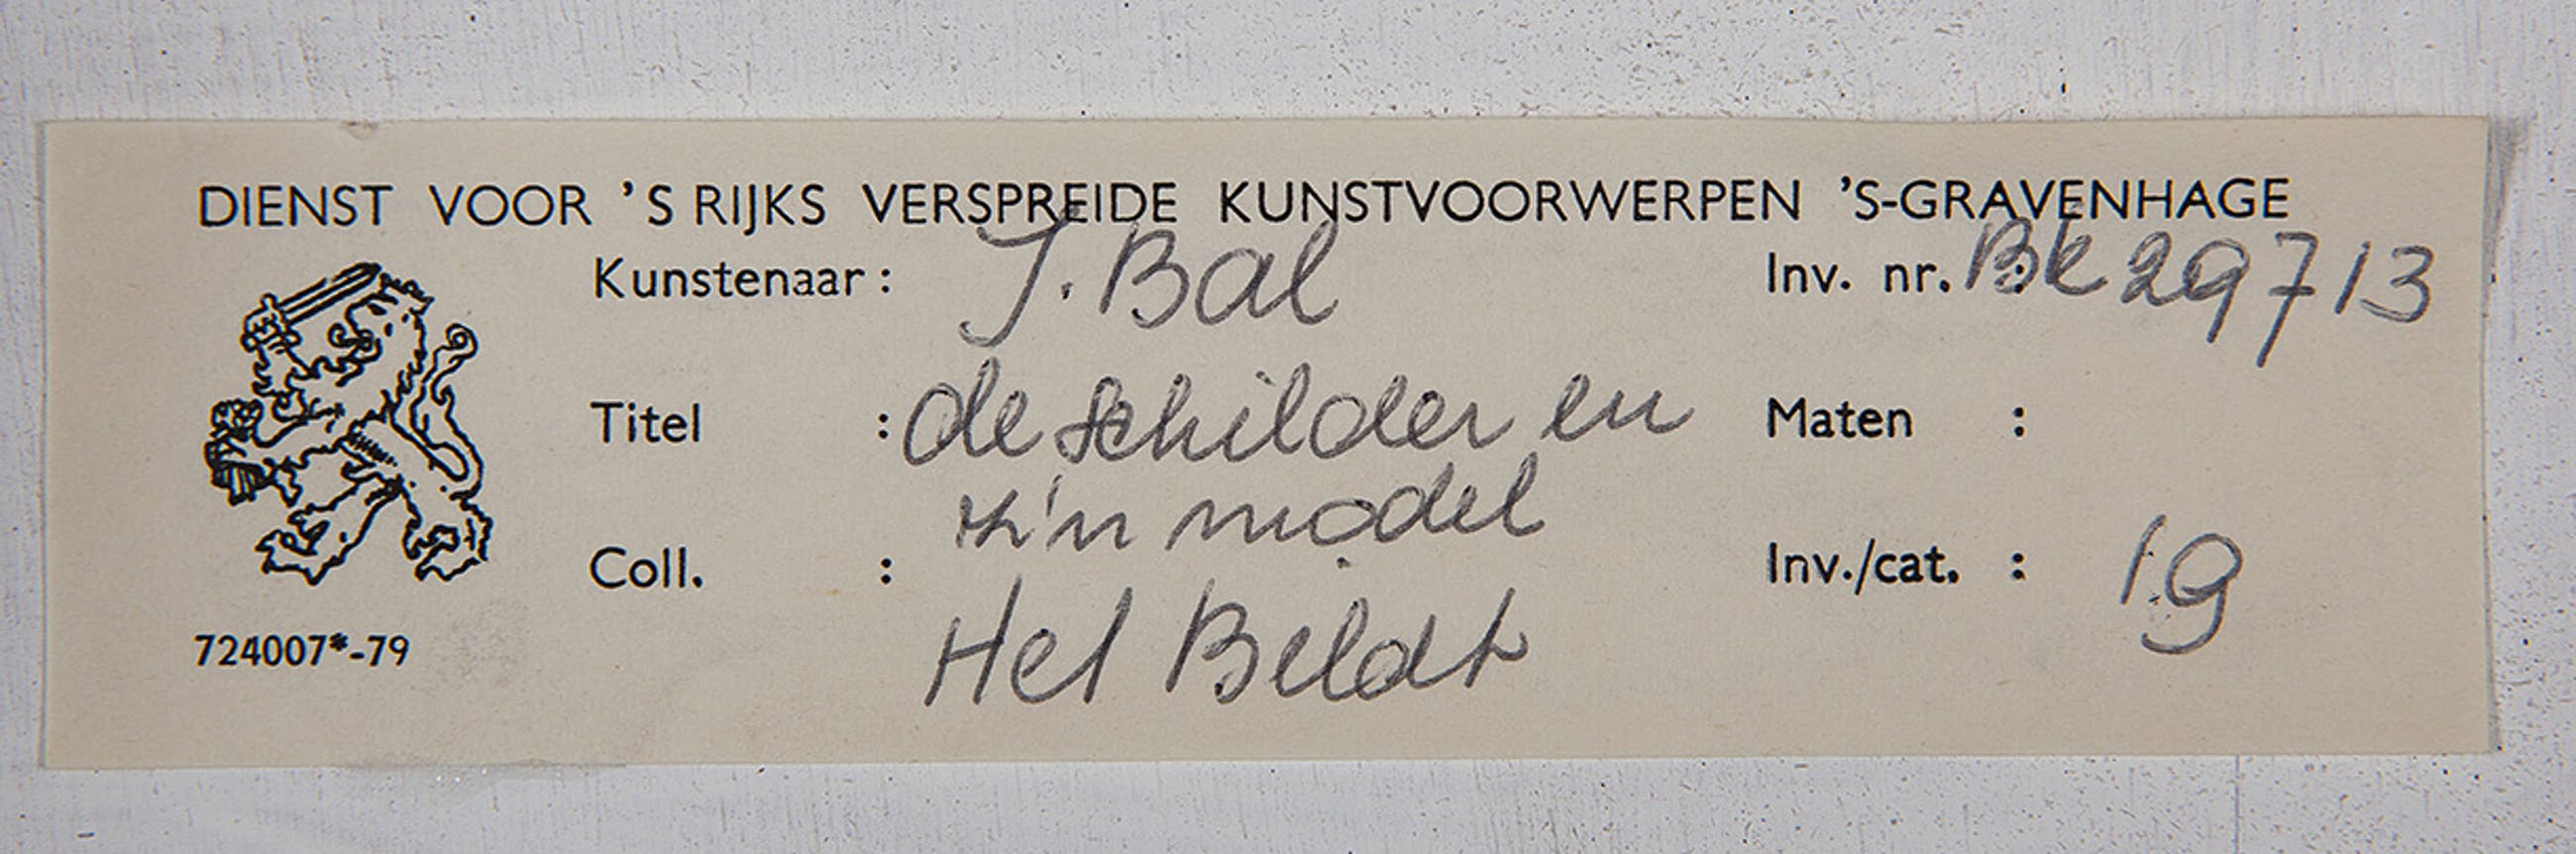 DIENST VOOR 'S RIJKS VERSPREIDE KUNSTVOORWERPEN 'S-GRAVENHAGE
Kunstenaar : J. Bal Inv. nr. : BK 29713
Titel : de schilder en Maten :
z'n model
Coll. : Inv./cat. : 19
Het Beeldt
724007*-79